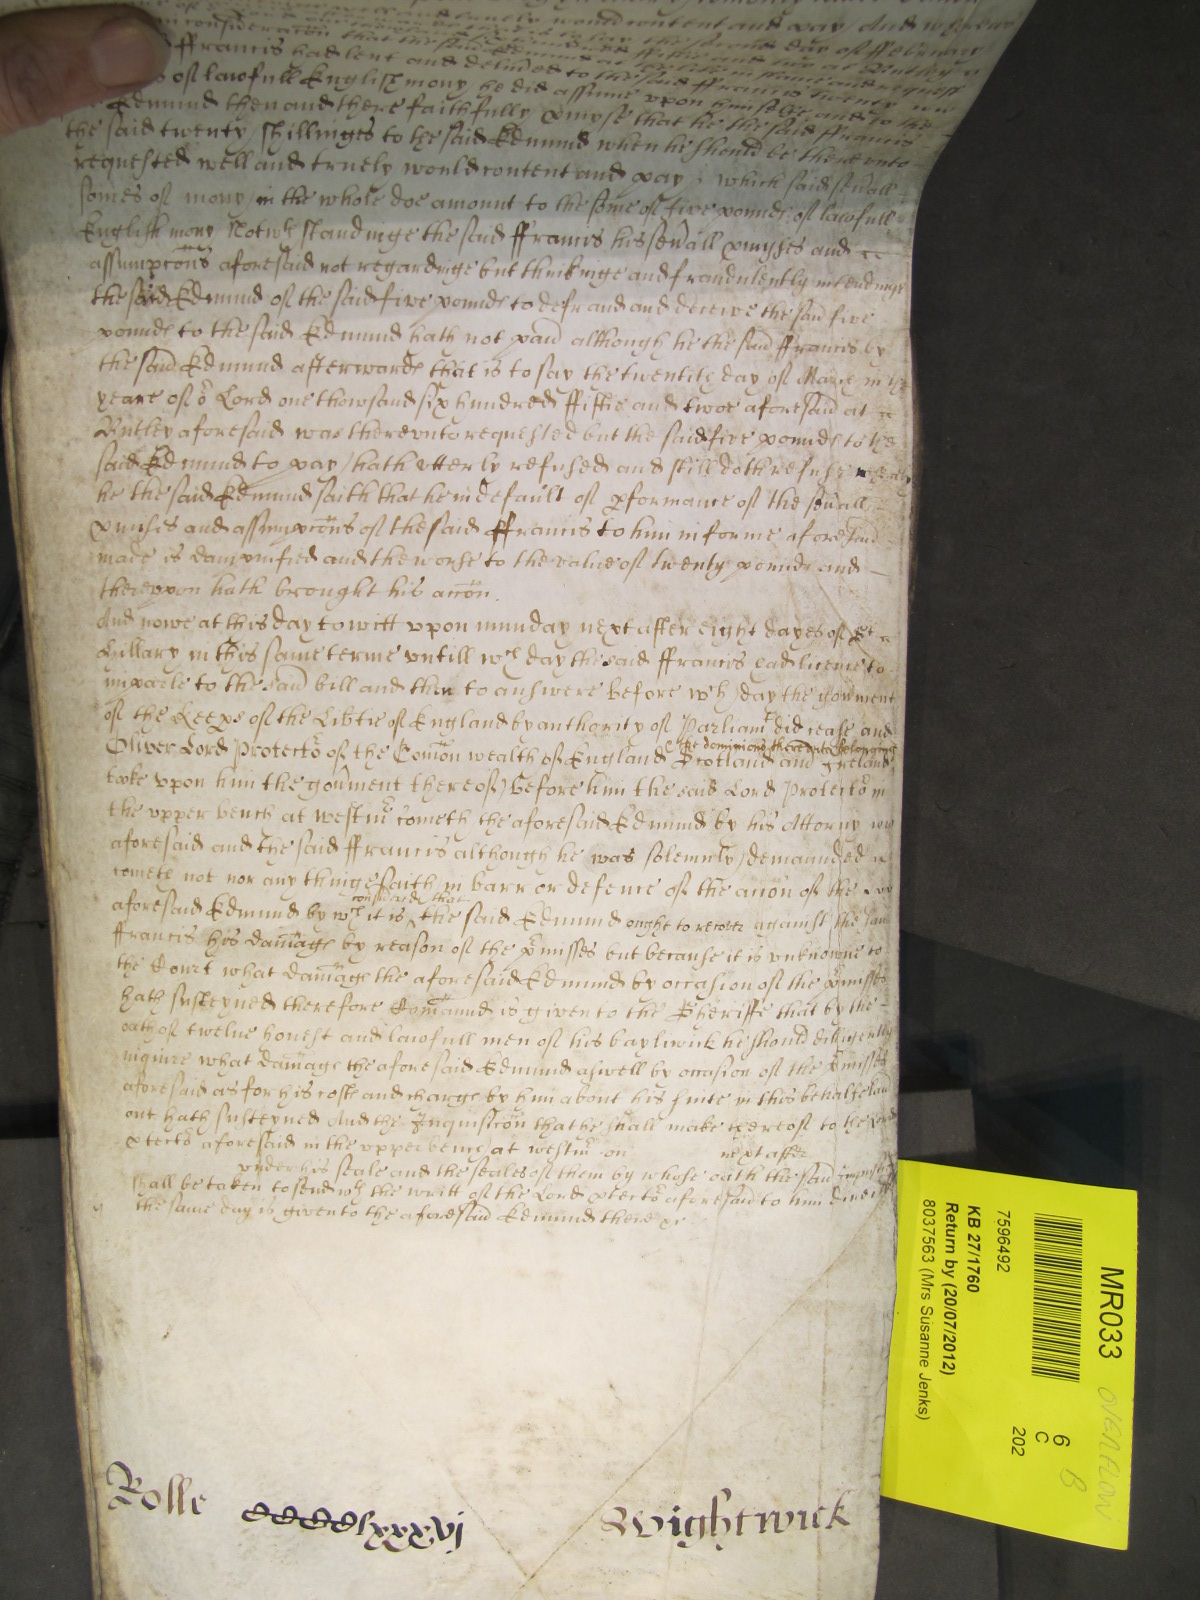 truely would content and pay And whereas
consideracon that the said Edmund
ffrancis had lent and deliued to the said ffrancis twenty
of lawfull English mony he did assume vpon himselfe and to the
Edmund then and there faithfully pmyse that he the said ffrancis
the said twenty shillinges to the said Edmund when he should be therevnto
requested well and truely would content and pay which said seuall
somes of mony in the whole doe amount to the some of five pounds of lawfull
English mony Notwthstandinge the said ffrancis his seuall pmyses and
assumpcons aforesaid not regardinge but thinkinge and fraudulently intendinge
the said Edmund of the said five pounds to defraud and deceive the said five
pounds to the said Edmund hath not paid although he the said ffrancis by
the said Edmund afterwards that is to say the twentith day of in the
yeare of or Lord one thowsand six hundred fiftie and twoe aforesaid at
Butley aforesaid was therevnto requested but the said five pounds to the
said Edmund to pay hath vtterly refused and still doth refuse whereby
he the said Edmund saith that he in default of pformance of the seuall
pmises and assumpcons of the said ffrancis to him in forme aforesaid
made is dampnified and the worse to the value of twenty pounds and
therevpon hath brought his accon.
And nowe at this day to witt vpon munday next after eight dayes of St
Hillary in this same terme vntill wch day the said ffrancis had licence to
imparle to the said bill and then to answere before wch day the goument
of the Keeps of the Libtie of England by authority of Parliamt did cease and
Oliver Lord Protector of the Comon wealth of England Scotland and Ireland
& the dominions therevnto belonging
tooke vpon him the goument thereof before him the said Lord Protector in
the vpper bench at Westmr cometh the aforesaid Edmund by his Attorny
aforesaid and the said ffrancis although he was solemnly demaunded
cometh not nor any thinge saith in barr or defence of the accon of the
considered that
aforesaid Edmund by wch it is the said Edmund ought to recover against the said
ffrancis his damage by reason of the pmisses but because it is vnknowne to
the Court what damage the aforesaid Edmund by occasion of the pmisses
hath susteyned therefore Comaund is given to the Sheriffe that by the
oath of twelue honest and lawfull men of his bayliwick he should dilligently
inquire what damage the aforesaid Edmund aswell by occasion of the pmisses
aforesaid as for his costs and charges by him about his suite in this behalfe laid
out hath susteyned And the Inquisicon that he shall make thereof to the Lord
ptector aforesaid in the vpper bench at Westmr on next after
vnder his seale and the seales of them by whose oath the said
shall be taken to send wth the writt of the Lord ptector aforesaid to him
the same day is given to the aforesaid Edmund there &c
Rolle CCCClxxxvj Wightwick
MR033
OVERFLOW
6
C
202
B
7596492
KB 27/1760
Return by (20/07/2012)
8037563 (Mrs Susanne Jenks)